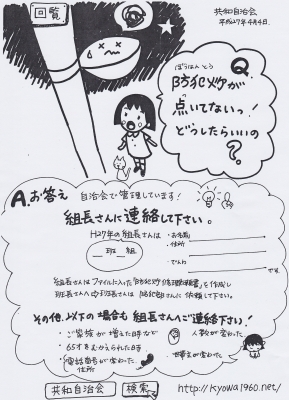 回覧
共和自治会
平成27年4月4日
Q.
ぼうはんとう
防犯灯が
点いてないっ!
どうしたらいいの
?
A.お答え 自治会で管理しています!
組長さんに連絡して下さい。
H27年の組長さんは
班 組
・お名前
住所
・でんわ
です。
組長さんはファイルに入った「防犯灯修理依頼書」を作成し
班長さんへ
班長さんは防犯部さんに依頼して下さい。
その他、以下の場合も組長さんへご連絡下さい!
・ご家族が増えた時など
人数が変わった
・65才をむかえられた時
・電話番号が変わった
住所
・世帯主が変わった
共和自治会 検索
http://kyowa1960.net/